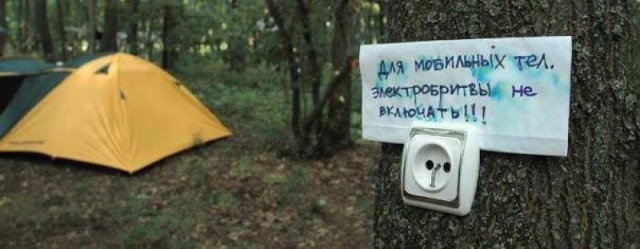 Для мобильных тел.
электробритвы не
включать!!!